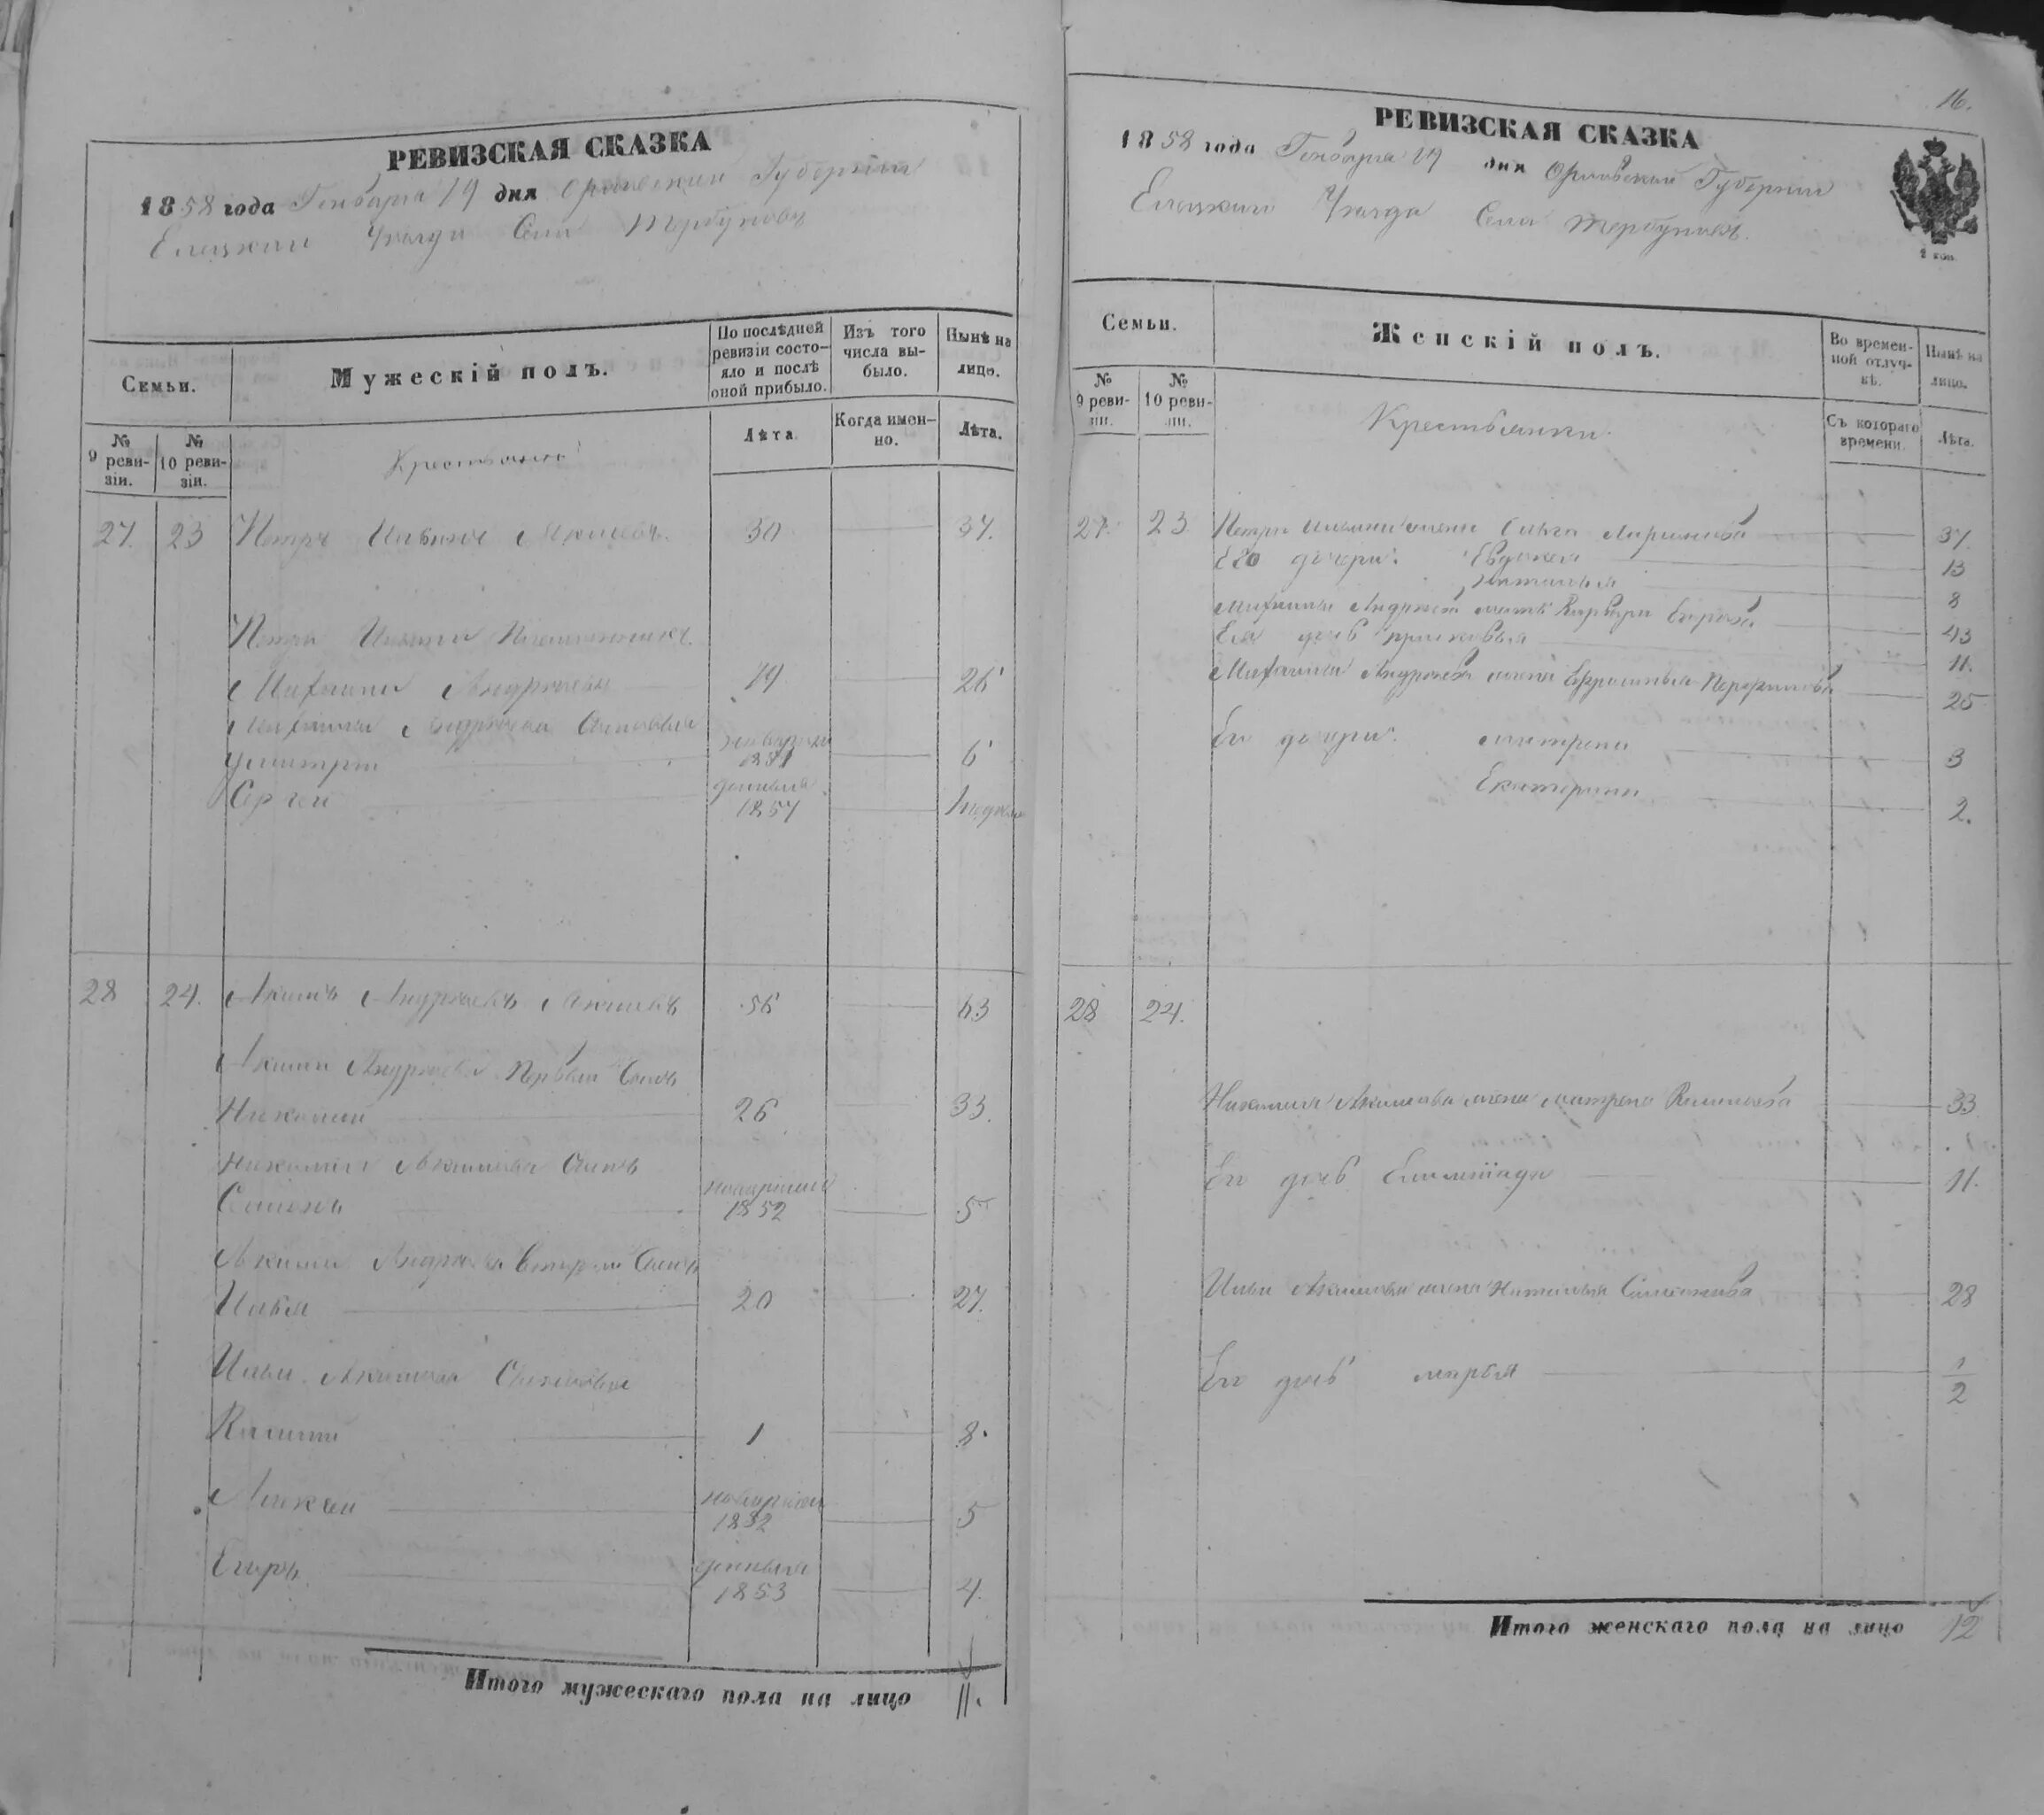 РЕВИЗСКАЯ СКАЗКА
1858 года Генваря 19 дня Орловской Губернии
Елецкаго Уезда Села Тербуновъ
Семьи.
Мужескій полъ.
По послѣдней ревизіи состо-
яло и послѣ
оной прибыло.
Изъ того
числа вы-
было.
Нынѣ на
лицо.
№ 9 реви-
зіи.
№ 10 реви-
зіи.
Крестьяне
Лѣта.
Когда имен-
но.
Лѣта.
27. 23 Петръ Ильинъ 30 37.
Петра Ильина Племянникъ
Михаила Андреевъ 19 26
Михаила Андреева Сыновья
Дмитрій 1851 6
Сергей 1857
28 24. Акимъ Андреевъ Акимовъ 56 63
Акима Андреева Первый Сынъ
Николай 26 33.
Николая Акимова Сынъ
Семенъ 1852 5
Акима Андреева Второй Сынъ
Илья 20 27.
Ильи Акимова Сыновья
1 8.
Алексей 1852 5
Егоръ 1853 4.
Итого мужескаго пола на лицо 11.
16.
РЕВИЗСКАЯ СКАЗКА
1858 года Генваря 19 дня Орловской Губернии
Елецкаго Уезда Села Тербуновъ.
2 коп.
Семьи.
Женскій полъ.
Во времен-
ной отлуч-
кѣ.
Нынѣ на
лицо.
№ 9 реви-
зіи.
№ 10 реви-
зіи.
Крестьянки
Съ котораго
времени.
Лѣта.
27. 23 Петра Ильина жена Ольга 37.
Его дочери: Евдокея 13
Наталья 8
Михаила Андреева мать Варвара Егорова 43
Ея дочь Прасковья 11.
Михаила Андреева жена Ефросинья 25
Его дочери: Матрена 3
Екатерина 2.
28 24.
Николая Акимова жена Матрена 33
Его дочь 11.
Ильи Акимова жена Наталья 28
Его дочь Марья 1/2
Итого женскаго пола на лицо 12